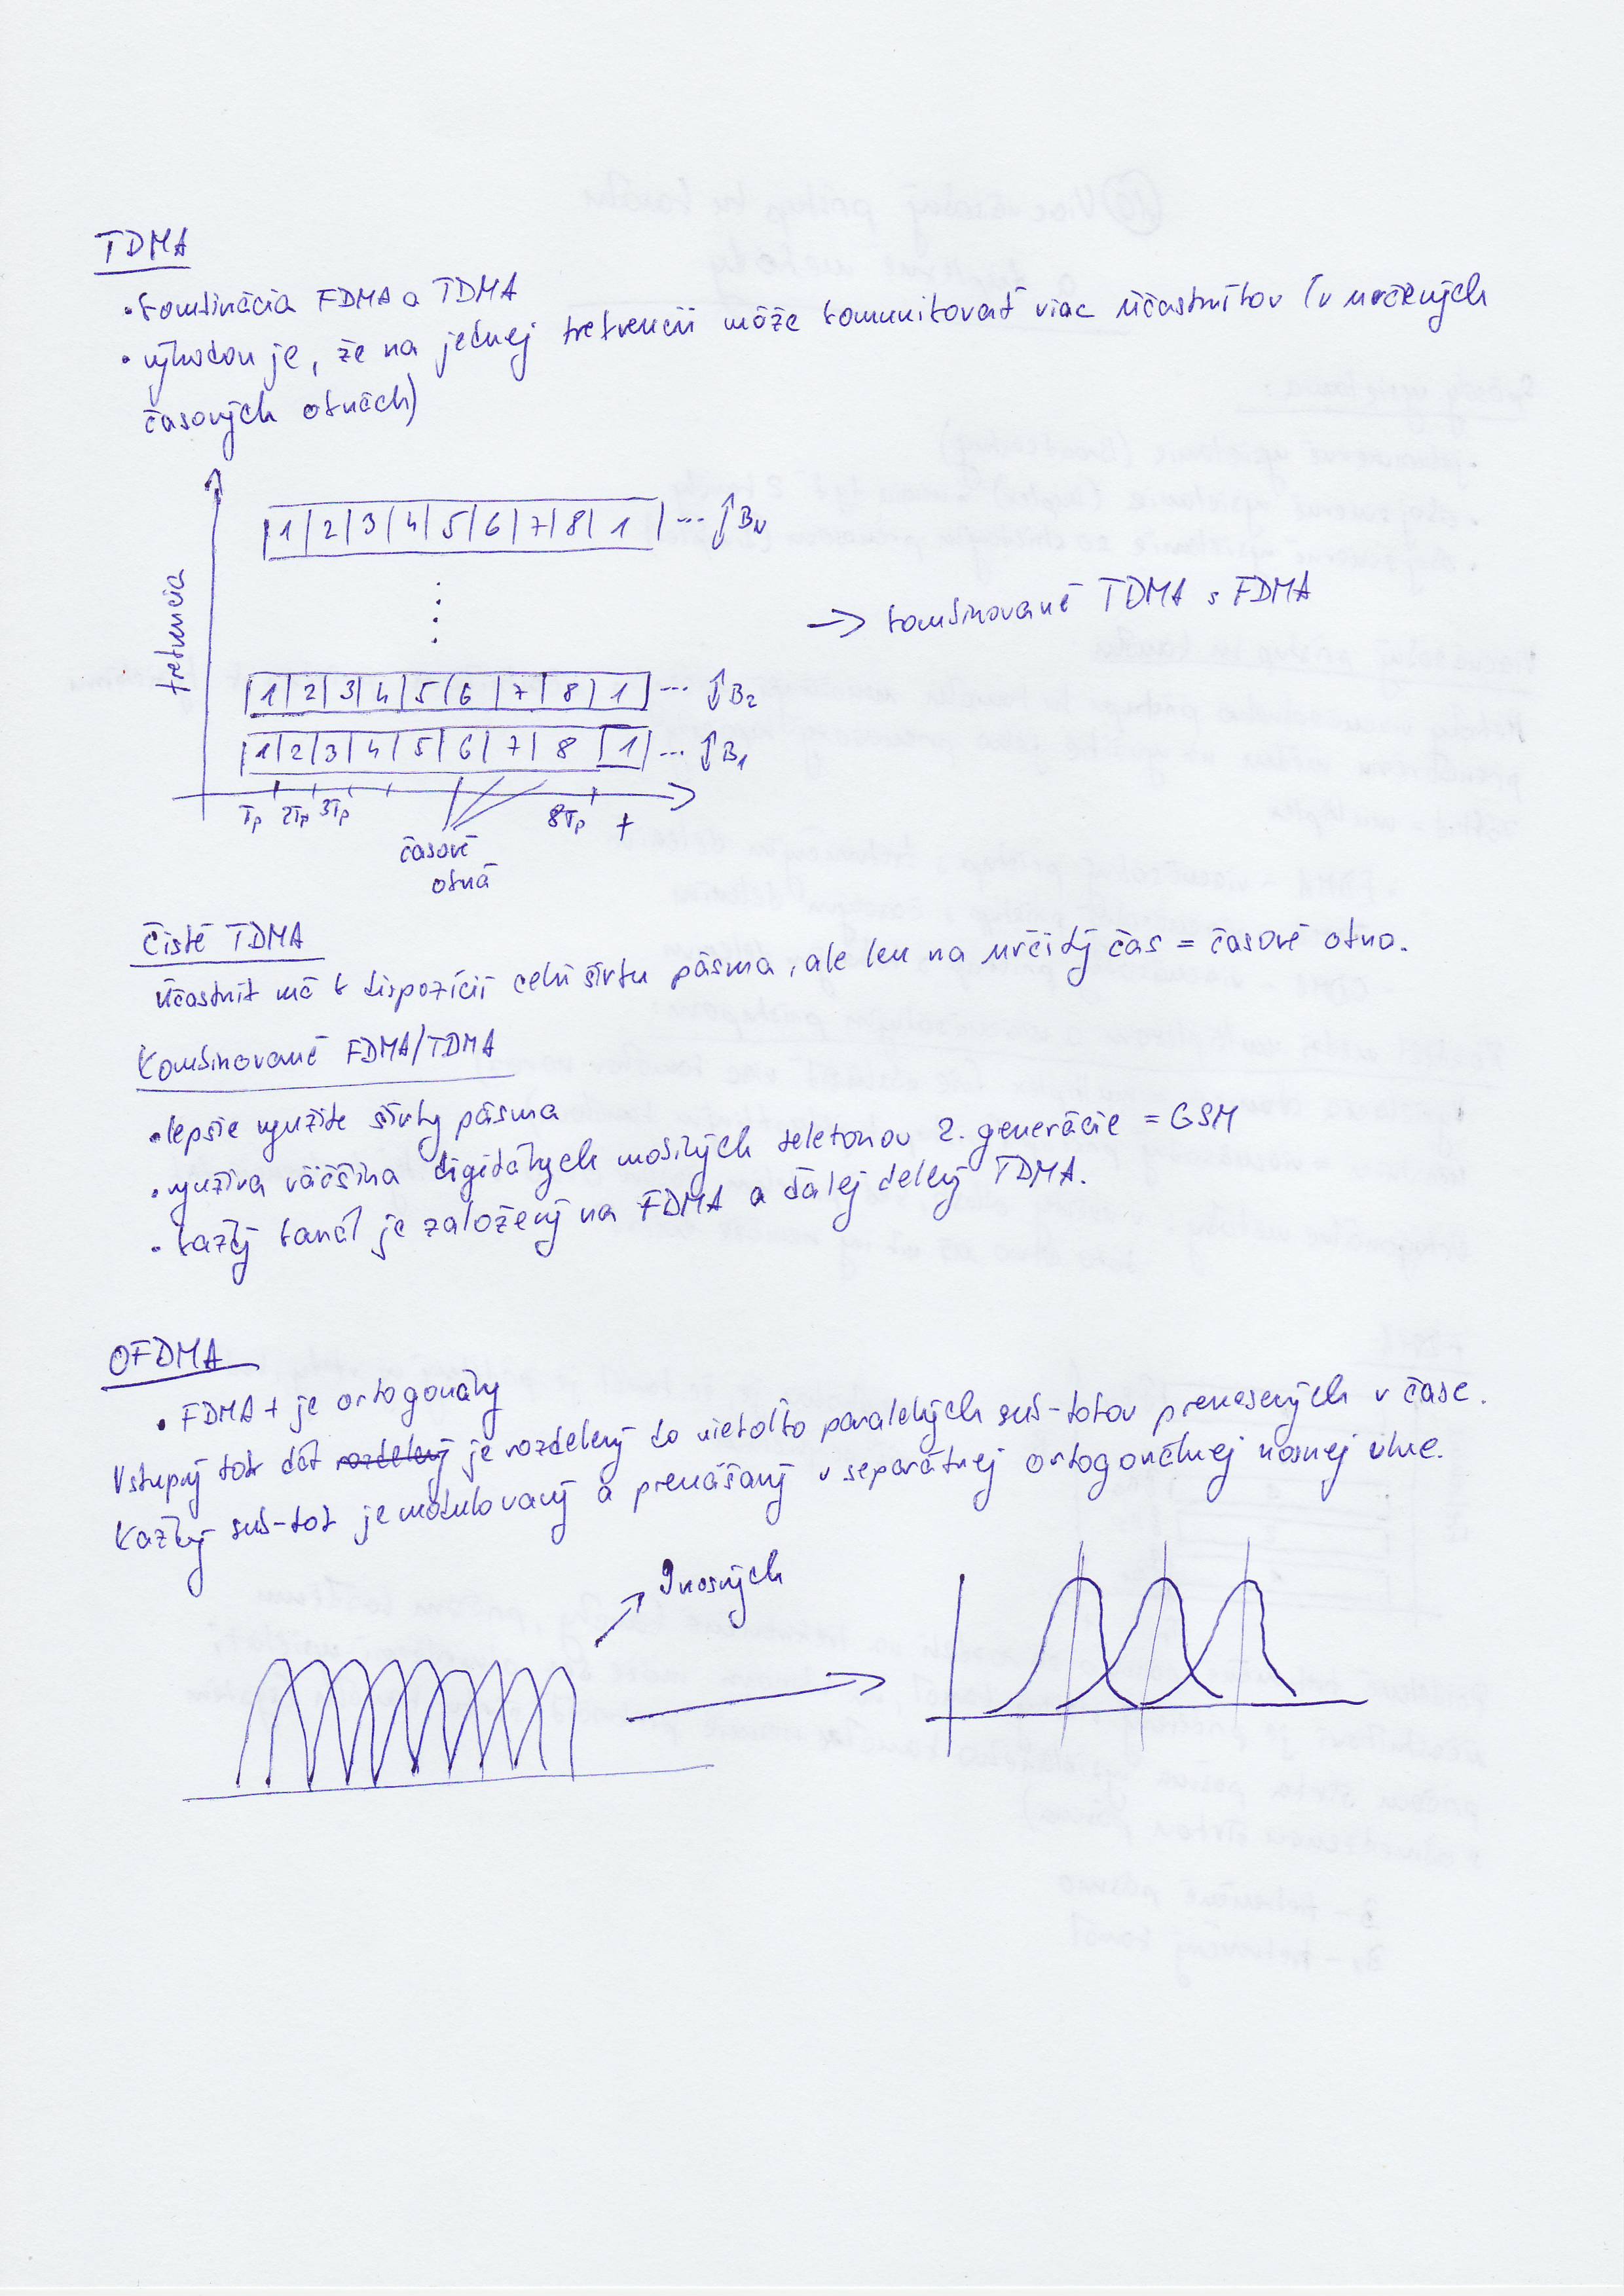 TDMA
• kombinácia FDMA a TDMA
• výhodou je, že na jednej frekvencii môže komunikovať viac účastníkov (v určených
časových oknách)
frekvencia
1 2 3 4 5 6 7 8 1 ... B_N
→ kombinované TDMA s FDMA
1 2 3 4 5 6 7 8 1 ... B_2
1 2 3 4 5 6 7 8 1 ... B_1
Tp 2Tp 3Tp 8Tp t
časové
okná
Čisté TDMA
účastník má k dispozícii celú šírku pásma, ale len na určitý čas = časové okno.
Kombinované FDMA/TDMA
• lepšie využite šírky pásma
• využíva väčšina digitálnych mobilných telefónov 2. generácie = GSM
• každý kanál je založený na FDMA a ďalej delený TDMA.
OFDMA
• FDMA + je ortogonálny
Vstupný tok dát rozdelený je rozdelený do niekoľko paralelných sub-tokov prenesených v čase.
Každý sub-tok je modulovaný a prenášaný v separátnej ortogonálnej nosnej vlne.
9 nosných